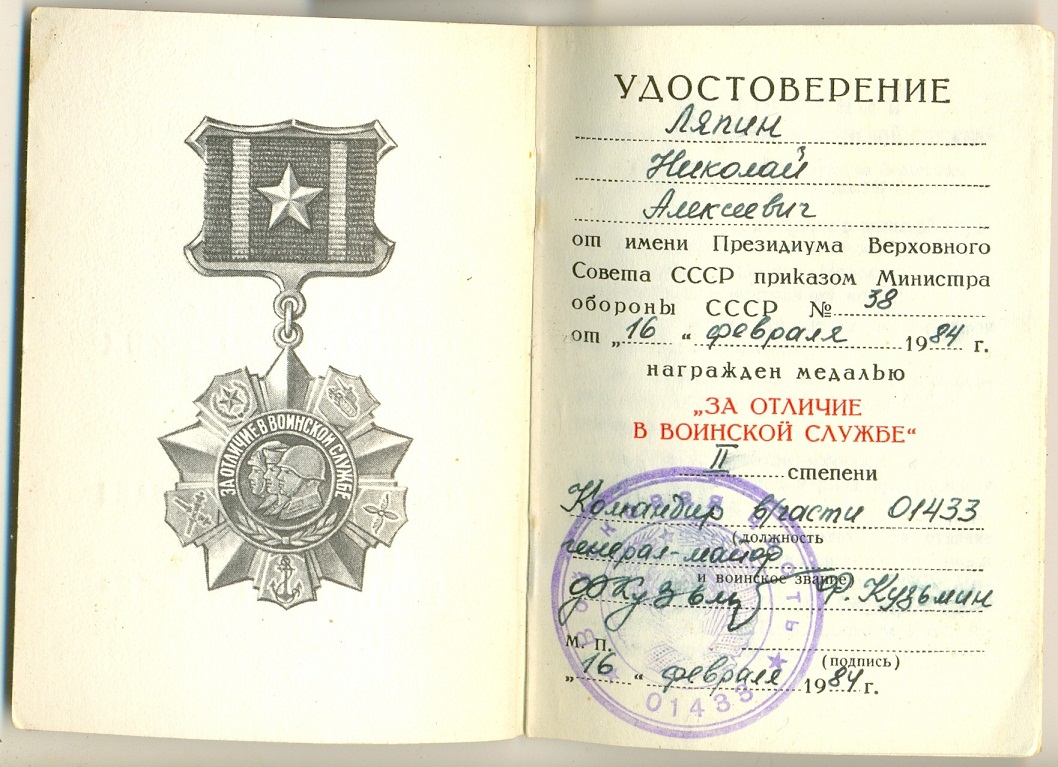 ЗА ОТЛИЧИЕ В ВОИНСКОЙ СЛУЖБЕ
УДОСТОВЕРЕНИЕ
Ляпин
Николай
Алексеевич
от имени Президиума Верховного
Совета СССР приказом Министра
обороны СССР № 38
от „16“ февраля 1984 г.
награжден медалью
„ЗА ОТЛИЧИЕ
В ВОИНСКОЙ СЛУЖБЕ“
II степени
Командир в/части 01433
(должность
генерал-майор
и воинское звание)
Ф. Кузьмин
М. П.
(подпись)
„16“ февраля 1984 г.
Войсковая часть
01433